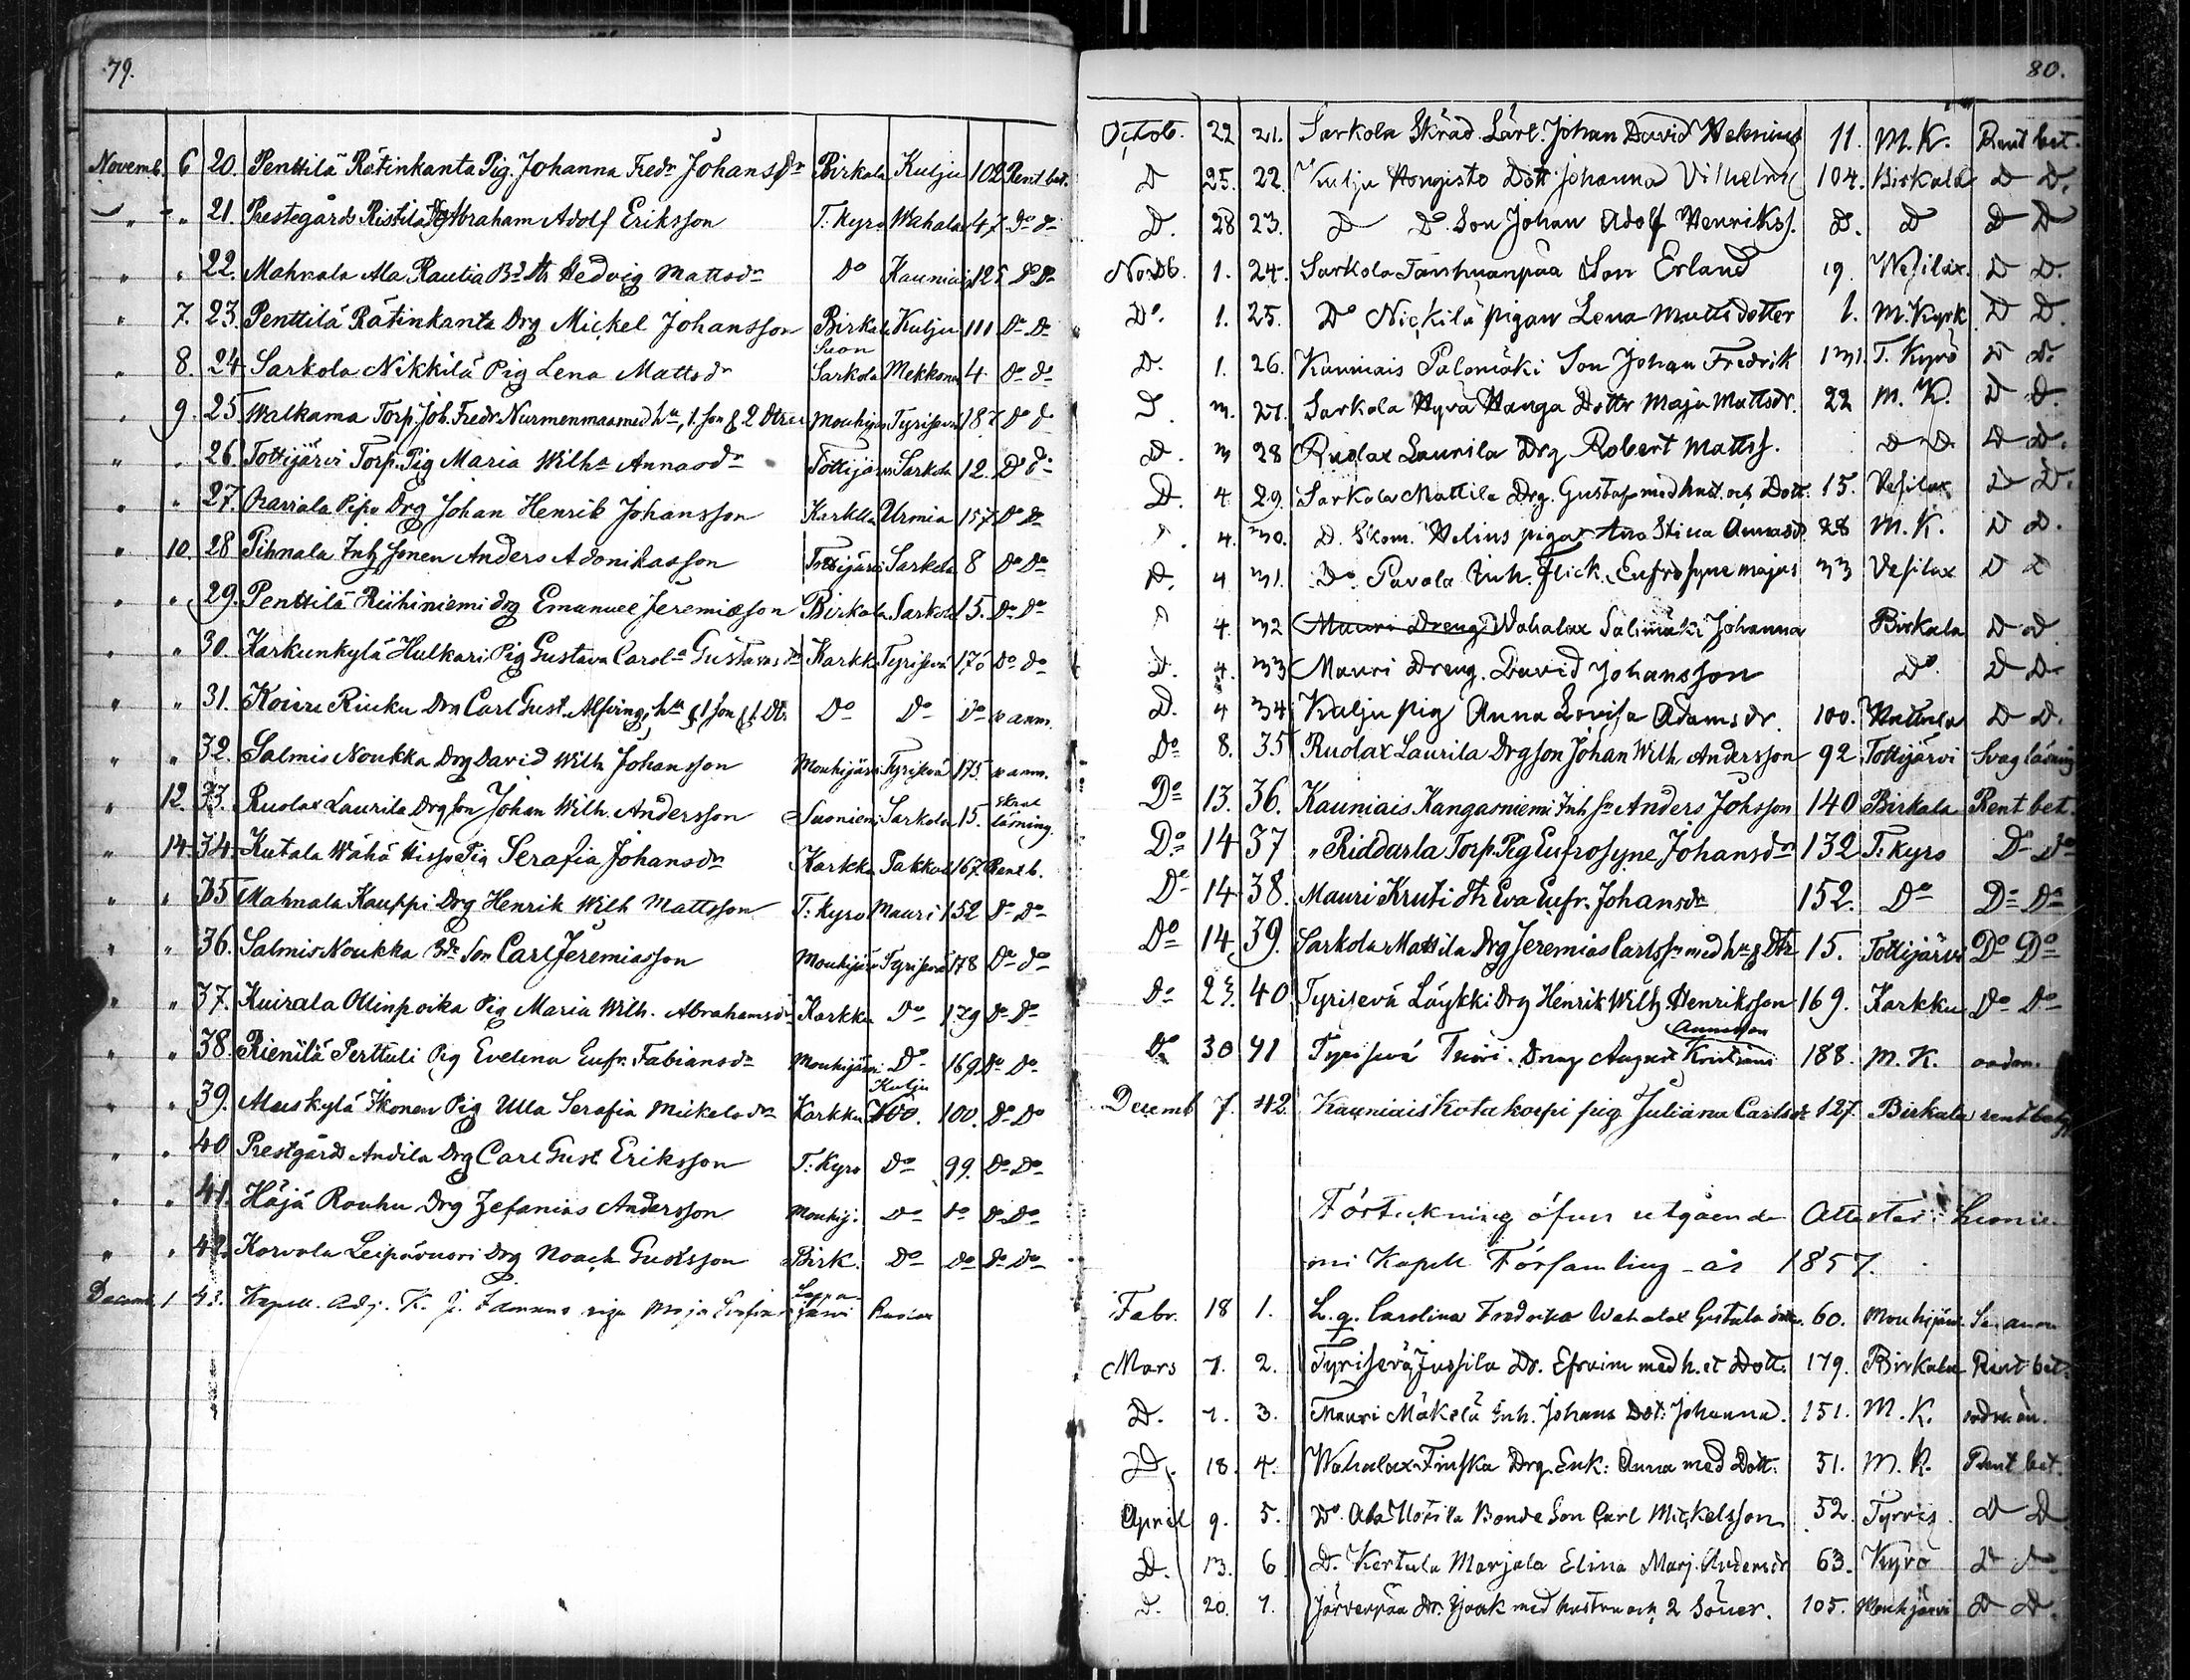 79.
Novemb. 6 20. Penttilä Rätinkanta Pig. Johanna Fred:a Johansd:r Birkala Kulju 102 Rent bet.
" " 21. Prestegårds Ristilä Drg Abraham Adolf Eriksson T. Kyro Wahalax 47 D:o d:o
" " 22. Mahnala Ala Rautia B:d dtr Hedvig Mattsd:r D:o Kauniais 125 D:o D:o
" 7. 23. Penttilä Rätinkanta Drg Mickel Johansson Birkala Kulju 111 D:o D:o
" 8. 24 Sarkola Nikkilä Pig Lena Mattsdr Sarkola Mekkona 4 D:o d:o
" 9. 25 Walkama Torp. Joh. Fredr. Nurmenmaa med h:u, 1. son & 2 dtrar Mouhijärvi Tyrisevä 187 D:o d:o
" " 26. Tottijärvi Torp. Pig Maria Wilh:a Annasd:r Tottijärvi Sarkola 12. D:o d:o
" " 27. Pipo Drg Johan Henrik Johansson Karkku Urmia 157 D:o D:o
" 10. 28 Pihnala Inh sonen Anders Adonikasson Tottijärvi Sarkola 8 D:o D:o
" " 29. Penttilä Riihiniemi drg Emanuel Jeremiasson Birkala Sarkola 15. D:o D:o
" " 30. Karkunkylä Hulkari Pig Gustava Carol:a Gustavasd:r Karkku Tyrisevä 176 D:o D:o
" " 31. Rinku Drg Carl Gust. Alfving, h:u & 1 son & 1 Dtr D:o D:o D:o v anm.
" " 32. Salmis Noukka Drg David Wilh Johansson Mouhijärvi Tyrisevä 175 v anm.
" 12. 33. Ruolax Laurila Drg son Johan Wilh. Andersson Suoniemi Sarkola 15. läsning.
" 14. 34. Kutala Wähä Hissa Pig Serafia Johansdr Karkku Pakkala 167. Rent b.
" " 35 Mahnala Kauppi Drg Henrik Wilh Mattsson T: Kyro Mauri 152 D:o D:o
" " 36. Salmis Noukka Bd: Son Carl Jeremiasson Mouhijärvi Tyrisevä 178 D:o D:o
" " 37. Kuirala Ollinpoika Pig Maria Wilh. Abrahamsd:r Karkku D:o 179 D:o D:o
" " 38. Rienilä Perttuli Pig Evelina Eufr. Fabiansd:r Mouhijärvi D:o 169 D:o D:o
" " 39. Aluskylä Ikonen Pig Ulla Serafia Mickelsd:r Karkku Kulju 100. D:o D:o
" " 40 Prestgårds Andila Drg Carl Gust Eriksson T: Kyro D:o 99. D:o D:o
" " 41. Häjä Rouhu Drg Zefanias Andersson Mouhij: D:o D:o D:o D:o
" " 42. Korvola Leipävuori Drg Noach Gustsson Birk. D:o D:o D:o D:o
Decemb. 1 43. Kapell. Adj. K. J. piga Maja Lappajärvi Ruolax
80.
Octob. 22 21. Sarkola Skräd. Lärl. Johan David Helenius 11. M. K. Rent bet.
D 25. 22. Kulju Hongisto Dott Johanna Vilhelm: 104. Birkala D D.
D. 28 23. D D:o Son Johan Adolf Henrikss. D. D D D
Novb. 1. 24. Sarkola Tanhuanpää Son Erland 19. Wesilax. D D.
D:o. 1. 25. D:o Nickilä pigan Lena Mattsdotter 1. M. Kyrk D D.
D. 1. 26. Kauniais Palomäki Son Johan Fredrik 131. T. Kyrö D D.
D. 3. 27. Sarkola Hyvä Hanga Dottr Maja Mattsdr. 22 M. K. D D.
D. 3 28 Ruolax Laurila Drg Robert Mattss. D D D D.
D. 4. 29. Sarkola Mattila Drg. Gustaf med hust. och Dott. 15. Vesilax D D.
D. 4. 30. D. Skom. Helins piga Ana Stina Annasd. 28 M. K. D D.
D. 4 31. D:o Pavola Inh. flick. Eufrosyne majas 33 Vesilax D D
D 4. 32 Mauri Dreng Wahalax Salmimäki Johanna Birkala D D
D. 4. 33 Mauri Dreng. David Johansson D:o D D
D. 4 34 Kulju pig Anna Lovisa Adamsdr. 100. D D.
D:o 8. 35 Ruolax Laurila Drgson Johan Wilh Andersson 92 Tottijärvi Svag läsning
D:o 13. 36. Kauniais Kangasniemi Inh Sn Anders Johsson 140 Birkala Rent bet.
D:o 14 37 " Riddarla Torp. Pig Eufrosyne Johansd:r 132 T: Kyro D:o D:o
D:o 14 38. Mauri Kruti dtr Eva Eufr. Johansd:r 152. D:o D:o D:o
D:o 14. 39. Sarkola Mattila Drg Jeremias Carlss:n med h:u & Dtr 15. Tottijärvi D:o D:o
D:o 23. 40 Tyrisevä Löykki Drg Henrik Wilh Henriksson 169. Karkku D:o D:o
D:o 30 41 Tyrisevä Tuori. Dreng August Kristians Annasson 188. M. K.
Decemb 7. 42. Kauniais Kotakorpi pig Juliana Carlsdr 127. Birkala rent betyg
Förteckning öfver utgående Attester i Suonie-
mi Kapell Församling år 1857.
Febr. 18 1. L. q. Carolina Fredrika Wahalax Gustala dotter. 60. Mouhijärvi Se anm
Mars 7. 2. Tyrisevä Jussila Dr. Efraim med h. et Dott. 179. Birkala Rent bet.
D. 7. 3. Mauri Mäkelä Inh. Johans Dot: Johanna. 151. M. K.
D. 18. 4. Wahalax Finska Drg. Enk: Anna med Dott. 51. M. K. Rent bet.
April 9. 5. D:o. Ala Bonde Son Carl Mickelsson 52. Tyrvis D D
D. 13. 6 D. Kertula Marjala Elina Marj. Andersdr 63. Kyrö D D
D. 20. 7. Järvenpää Dr. Isaak med hustru och 2 Söner. 105. Mouhijärvi D D.